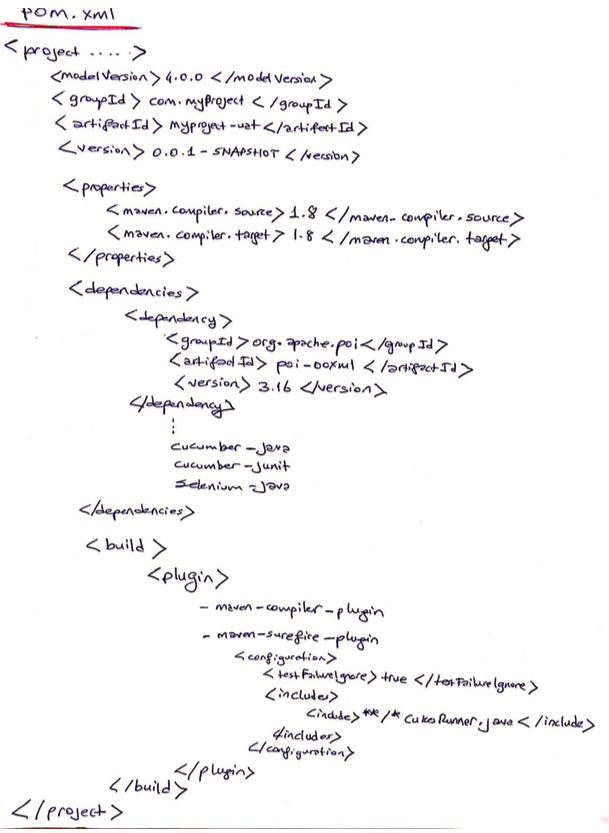 pom.xml
<project .....>
<modelVersion> 4.0.0 </modelVersion>
<groupId> com.myProject </groupId>
<artifactId> myproject-uat </artifactId>
<version> 0.0.1 - SNAPSHOT </version>
<properties>
<maven.compiler.source> 1.8 </maven-compiler.source>
<maven.compiler.target> 1.8 </maven.compiler.target>
</properties>
<dependencies>
<dependency>
<groupId> org.apache.poi </groupId>
<artifactId> poi-ooxml </artifactId>
<version> 3.16 </version>
</dependency>
⋮
cucumber-java
cucumber-junit
selenium-java
</dependencies>
<build>
<plugin>
- maven-compiler-plugin
- maven-surefire-plugin
<configuration>
<testFailureIgnore> true </testFailureIgnore>
<includes>
<include> **/* CukesRunner.java </include>
</includes>
</configuration>
</plugin>
</build>
</project>